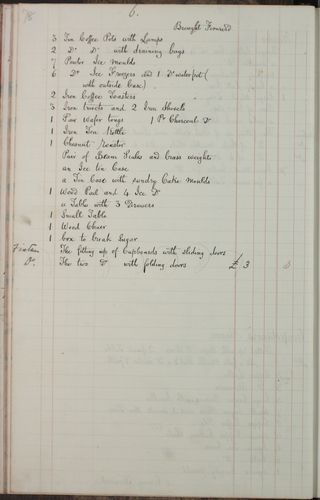 6.
Brought Forward
3 Tin Coffee Pots with Lamps
2 Do Do with draining bags
7 Pewter Ice Moulds
6 Do Ice Freezers and 1 Do water pot (
with outside Case)
2 Iron Coffee Toasters
3 Iron trivets and 2 Iron Shovels
1 Pair Wafer tongs 1 Pr Charcoal Do
1 Iron Tea Kettle
1 Chesnut Roaster
Pair of Beam Scales and brass weights
an Ice tin Case
a Tin Case with sundry Cake Moulds
1 Wood Pail and 4 Ice Do
a Table with 3 Drawers
1 Small Table
1 Wood Chair
1 box to break Sugar
Fixture The fitting up of Cupboards with sliding doors
Do The two Do with folding doors £ 3